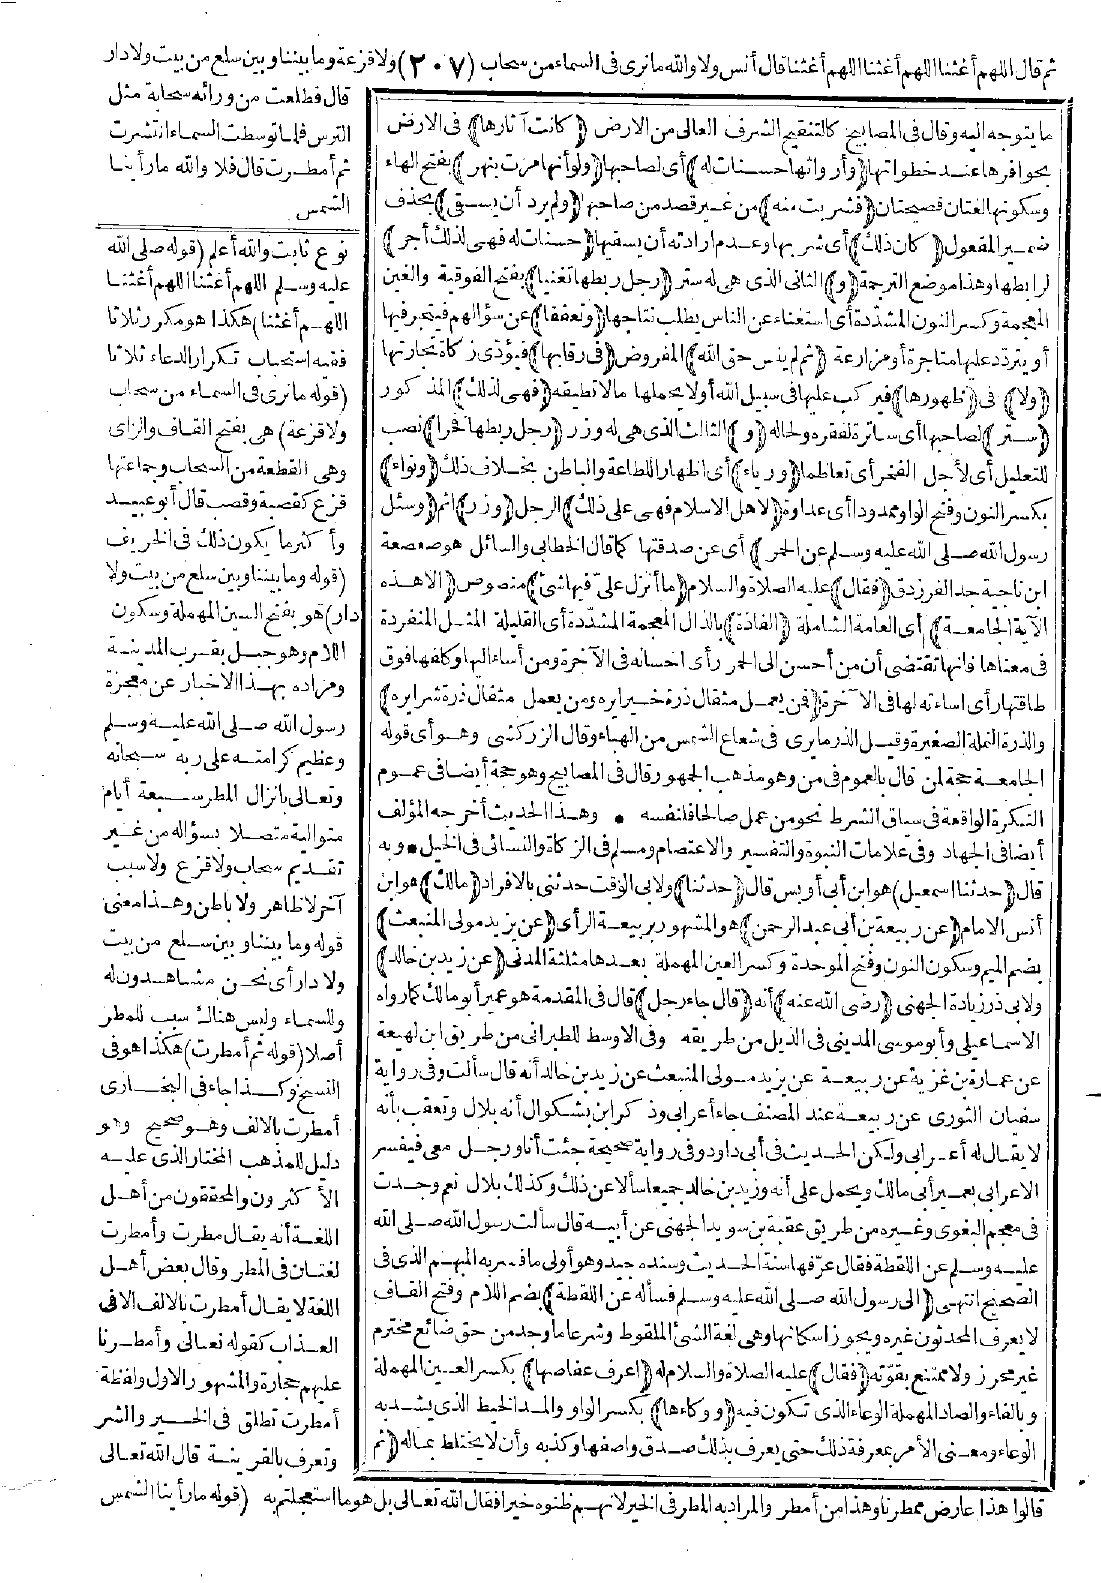 ثم قال اللهم أغثنا اللهم أغثنا اللهم أغثنا قال أنس ولا والله ما نرى فى السماء من سحاب (٢٠٧) ولا قزعة وما بيننا وبين سلع من بيت ولا دار
قال فطلعت من ورائه سحابة مثل
الترس فلما توسطت السماء انتشرت
ثم أمطرت قال فلا والله ما رأينا
الشمس
نوع ثابت والله أعلم (قوله صلى الله
عليه وسلم اللهم أغثنا اللهم أغثنا
اللهم أغثنا) هكذا هو مكرر ثلاثا
ففيه استحباب تكرار الدعاء ثلاثا
(قوله ما نرى فى السماء من سحاب
ولا قزعة) هى بفتح القاف والزاى
وهى القطعة من السحاب وجماعتها
قزع كقصبة وقصب قال أبو عبيد
وأكثر ما يكون ذلك فى الخريف
(قوله وما بيننا وبين سلع من بيت ولا
دار) هو بفتح السين المهملة وسكون
اللام وهو جبل بقرب المدينة
ومراده بهذا الاخبار عن معجزة
رسول الله صلى الله عليه وسلم
وعظيم كرامته على ربه سبحانه
وتعالى بانزال المطر سبعة أيام
متوالية متصلا بسؤاله من غير
تقديم سحاب ولا قزع ولا سبب
آخر لا ظاهر ولا باطن وهذا معنى
قوله وما بيننا وبين سلع من بيت
ولا دار أى نحن مشاهدون له
وللسماء وليس هناك سبب للمطر
أصلا (قوله ثم أمطرت) هكذا هو فى
النسخ وكذا جاء فى البخارى
أمطرت بالالف وهو صحيح وهو
دليل للمذهب المختار الذى عليه
الأكثرون والمحققون من أهل
اللغة أنه يقال مطرت وأمطرت
لغتان فى المطر وقال بعض أهل
اللغة لا يقال أمطرت بالالف الا فى
العذاب كقوله تعالى وأمطرنا
عليهم حجارة والمشهور الاول ولفظة
أمطرت تطلق فى الخير والشر
وتعرف بالقرينة قال الله تعالى
ما يتوجه اليه وقال فى المصابيح كالتنقيح الشرف العالى من الارض ﴿كانت آثارها﴾ فى الارض
بحوافرها عند خطواتها ﴿وأرواثها حسنات له﴾ أى لصاحبها ﴿ولو أنها مرت بنهر﴾ بفتح الهاء
وسكونها لغتان فصيحتان ﴿فشربت منه﴾ من غير قصد من صاحبها ﴿ولم يرد أن يسقى﴾ بحذف
ضمير المفعول ﴿كان ذلك﴾ أى شربها وعدم ارادته أن يسقيها ﴿حسنات له فهى لذلك أجر﴾
لرابطها وهذا موضع الترجمة ﴿و﴾ الثانى الذى هى له ستر ﴿رجل ربطها تغنيا﴾ بفتح الفوقية والغين
المعجمة وكسر النون المشددة أى استغناء عن الناس بطلب نتاجها ﴿وتعففا﴾ عن سؤالهم فيتجر فيها
أو يتردد عليها متاجرة أو مزارعة ﴿ثم لم ينس حق الله﴾ المفروض ﴿فى رقابها﴾ فيؤدى زكاة تجارتها
﴿ولا﴾ فى ﴿ظهورها﴾ فيركب عليها فى سبيل الله أو لا يحملها ما لا تطيقه ﴿فهى لذلك﴾ المذكور
﴿ستر﴾ لصاحبها أى ساترة لفقره ولحاله ﴿و﴾ الثالث الذى هى له وزر ﴿رجل ربطها فخرا﴾ نصب
للتعليل أى لأجل الفخر أى تعاظما ﴿ورياء﴾ أى اظهار اللطاعة والباطن بخلاف ذلك ﴿ونواء﴾
بكسر النون وفتح الواو ممدودا أى عداوة ﴿لاهل الاسلام فهى على ذلك﴾ الرجل ﴿وزر﴾ اثم ﴿وسئل
رسول الله صلى الله عليه وسلم عن الحمر﴾ أى عن صدقتها كما قال الخطابى والسائل هو صعصعة
ابن ناجية جد الفرزدق ﴿فقال﴾ عليه الصلاة والسلام ﴿ما أنزل على فيها شئ﴾ منصوص ﴿الا هذه
الآية الجامعة﴾ أى العامة الشاملة ﴿الفاذة﴾ بالذال المعجمة المشددة أى القليلة المثل المنفردة
فى معناها فانها تقتضى أن من أحسن الى الحمر رأى احسانه فى الآخرة ومن أساء اليها وكلفها فوق
طاقتها رأى اساءته لها فى الآخرة ﴿فمن يعمل مثقال ذرة خيرا يره ومن يعمل مثقال ذرة شرا يره﴾
والذرة النملة الصغيرة وقيل الذر ما يرى فى شعاع الشمس من الهباء وقال الزركشى وهو أى قوله
الجامعة حجة لمن قال بالعموم فى من وهو مذهب الجمهور قال فى المصابيح وهو حجة أيضا فى عموم
النكرة الواقعة فى سياق الشرط نحو من عمل صالحا فلنفسه • وهذا الحديث أخرجه المؤلف
أيضا فى الجهاد وفى علامات النبوة والتفسير والاعتصام ومسلم فى الزكاة والنسائى فى الخيل • وبه
قال ﴿حدثنا اسمعيل﴾ هو ابن أبى أويس قال ﴿حدثنا﴾ ولابى الوقت حدثنى بالافراد ﴿مالك﴾ هو ابن
أنس الامام ﴿عن ربيعة بن أبى عبد الرحمن﴾ هو المشهور بربيعة الرأى ﴿عن يزيد مولى المنبعث﴾
بضم الميم وسكون النون وفتح الموحدة وكسر العين المهملة بعدها مثلثة المدنى ﴿عن زيد بن خالد﴾
ولابى ذر زيادة الجهنى ﴿رضى الله عنه﴾ أنه ﴿قال جاء رجل﴾ قال فى المقدمة هو عمير أبو مالك كما رواه
الاسماعيلى وأبو موسى المدينى فى الذيل من طريقه وفى الاوسط للطبرانى من طريق ابن لهيعة
عن عمارة بن غزية عن ربيعة عن يزيد مولى المنبعث عن زيد بن خالد أنه قال سألت وفى رواية
سفيان الثورى عن ربيعة عند المصنف جاء أعرابى وذكر ابن بشكوال أنه بلال وتعقب بأنه
لا يقال له أعرابى ولكن الحديث فى أبى داود وفى رواية صحيحة جئت أنا ورجل معى فيفسر
الاعرابى بعمير أبى مالك ويحمل على أنه وزيد بن خالد جميعا سألا عن ذلك وكذلك بلال نعم وجدت
فى معجم البغوى وغيره من طريق عقبة بن سويد الجهنى عن أبيه قال سألت رسول الله صلى الله
عليه وسلم عن اللقطة فقال عرفها سنة الحديث وسنده جيد وهو أولى ما فسر به المبهم الذى فى
الصحيح انتهى ﴿الى رسول الله صلى الله عليه وسلم فسأله عن اللقطة﴾ بضم اللام وفتح القاف
لا يعرف المحدثون غيره ويجوز اسكانها وهى لغة الشئ الملقوط وشرعا ما وجد من حق ضائع محترم
غير محرز ولا ممتنع بقوته ﴿فقال﴾ عليه الصلاة والسلام له ﴿اعرف عفاصها﴾ بكسر العين المهملة
وبالفاء والصاد المهملة الوعاء الذى تكون فيه ﴿ووكاءها﴾ بكسر الواو والمد الخيط الذى يشد به
الوعاء ومعنى الأمر بمعرفة ذلك حتى يعرف بذلك صدق واصفها وكذبه وأن لا يختلط بماله ﴿ثم
قالوا هذا عارض ممطرنا وهذا من أمطر والمراد به المطر فى الخير لانهم ظنوه خيرا فقال الله تعالى بل هو ما استعجلتم به (قوله ما رأينا الشمس